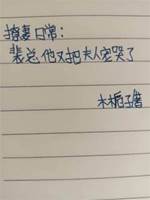 撩妻日常：
裴总，他又把夫人宠哭了
木栀子著